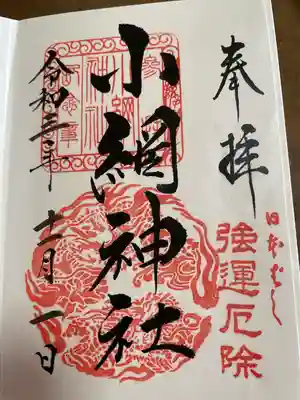 奉拝
日本ばし
強運厄除
小網神社
令和三年
十一月一日